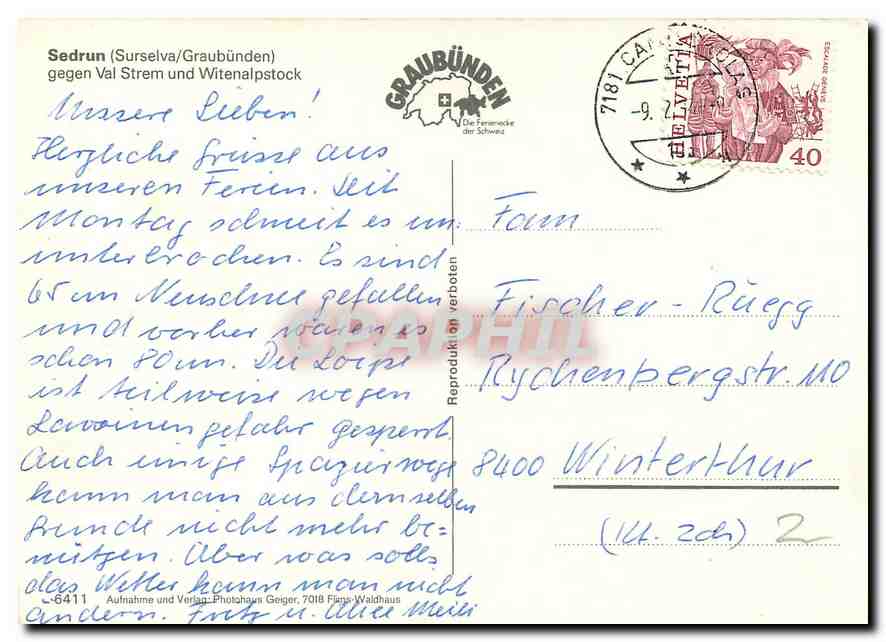 Sedrun (Surselva/Graubünden)
gegen Val Strem und Witenalpstock
GRAUBÜNDEN
Die Ferienecke
der Schweiz
7181 CAM
-9. 2.
HELVETIA
ESCALADE GENEVE
40
Unsere Lieben!
Herzliche Grüsse aus
unseren Ferien. Seit
Montag schneit es un:
unterbrochen. Es sind
65 cm Neuschnee gefallen
und vorher waren es
schon 80 cm. Die Loipe
ist teilweise wegen
Lawinengefahr gesperrt.
Auch einige Spazierwege
kann man aus demselben
Grunde nicht mehr be=
nützen. Aber was solls
das Wetter kann man nicht
ändern. Fritz u. Alice Meili
Reproduktion verboten
Fam
Fischer-Rüegg
Rychenbergstr. 110
8400 Winterthur
(Kt. Zch) 2
6411 Aufnahme und Verlag: Photohaus Geiger, 7018 Flims-Waldhaus
CPAPHIL